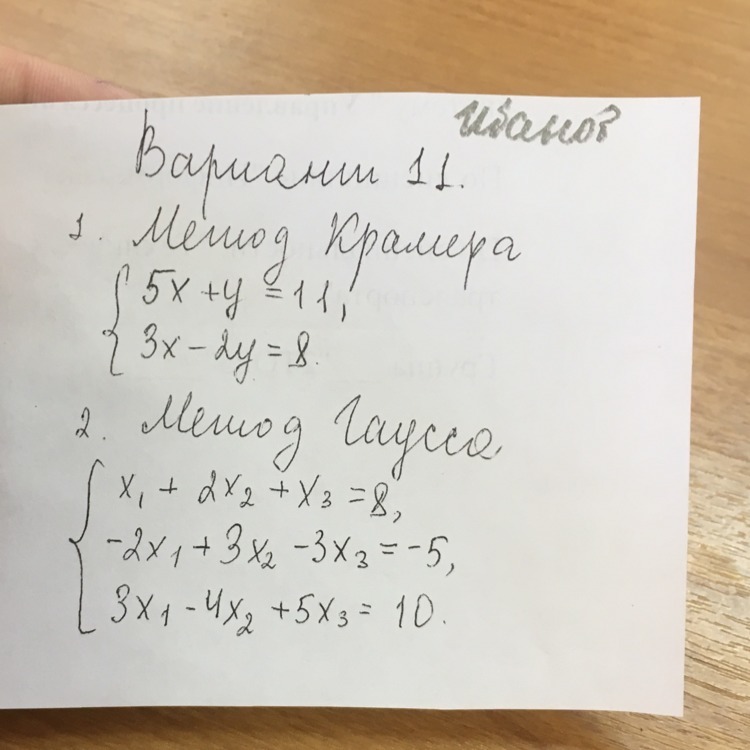 Иванов
Вариант 11.
1. Метод Крамера
5x + y = 11,
3x - 2y = 8.
2. Метод Гаусса
x₁ + 2x₂ + x₃ = 8,
-2x₁ + 3x₂ - 3x₃ = -5,
3x₁ - 4x₂ + 5x₃ = 10.